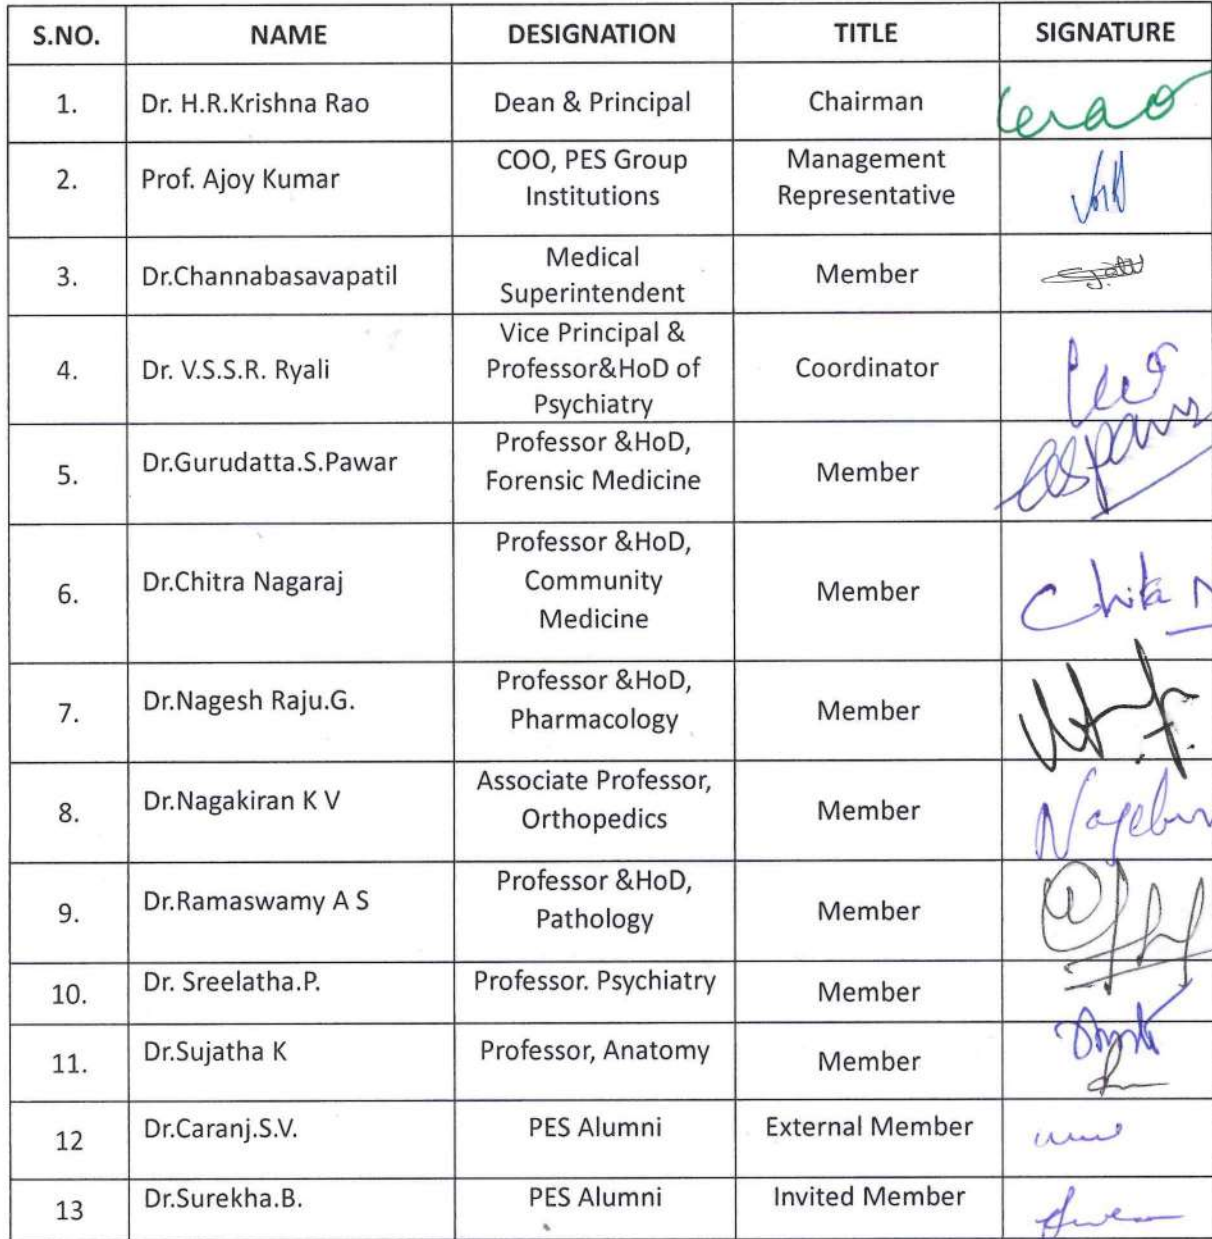 S.NO. NAME DESIGNATION TITLE SIGNATURE
1. Dr. H.R.Krishna Rao Dean & Principal Chairman
2. Prof. Ajoy Kumar COO, PES Group Institutions Management Representative
3. Dr.Channabasavapatil Medical Superintendent Member
4. Dr. V.S.S.R. Ryali Vice Principal & Professor&HoD of Psychiatry Coordinator
5. Dr.Gurudatta.S.Pawar Professor &HoD, Forensic Medicine Member
6. Dr.Chitra Nagaraj Professor &HoD, Community Medicine Member
7. Dr.Nagesh Raju.G. Professor &HoD, Pharmacology Member
8. Dr.Nagakiran K V Associate Professor, Orthopedics Member
9. Dr.Ramaswamy A S Professor &HoD, Pathology Member
10. Dr. Sreelatha.P. Professor. Psychiatry Member
11. Dr.Sujatha K Professor, Anatomy Member
12 Dr.Caranj.S.V. PES Alumni External Member
13 Dr.Surekha.B. PES Alumni Invited Member